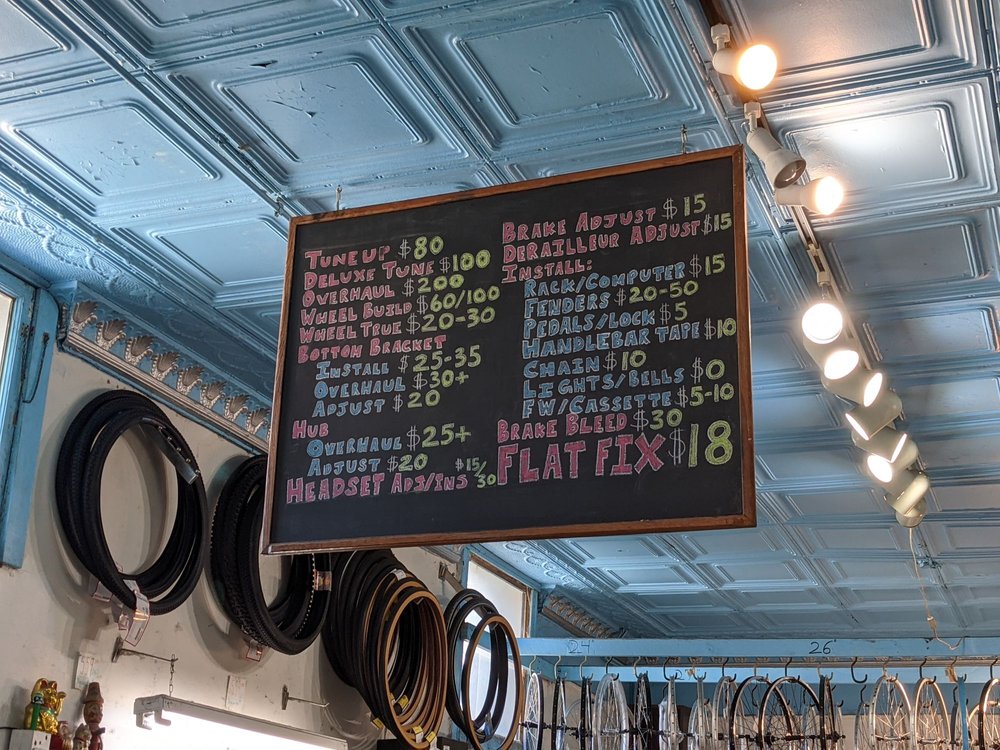 TUNEUP $80
DELUXE TUNE $100
OVERHAUL $200
WHEEL BUILD $60/100
WHEEL TRUE $20-30
BOTTOM BRACKET
INSTALL $25-35
OVERHAUL $30+
ADJUST $20
HUB
OVERHAUL $25+
ADJUST $20
HEADSET ADJ/INS $15/30
BRAKE ADJUST $15
DERAILLEUR ADJUST $15
INSTALL:
RACK/COMPUTER $15
FENDERS $20-50
PEDALS/LOCK $5
HANDLEBAR TAPE $10
CHAIN $10
LIGHTS/BELLS $0
FW/CASSETTE $5-10
BRAKE BLEED $30
FLAT FIX $18
24
26